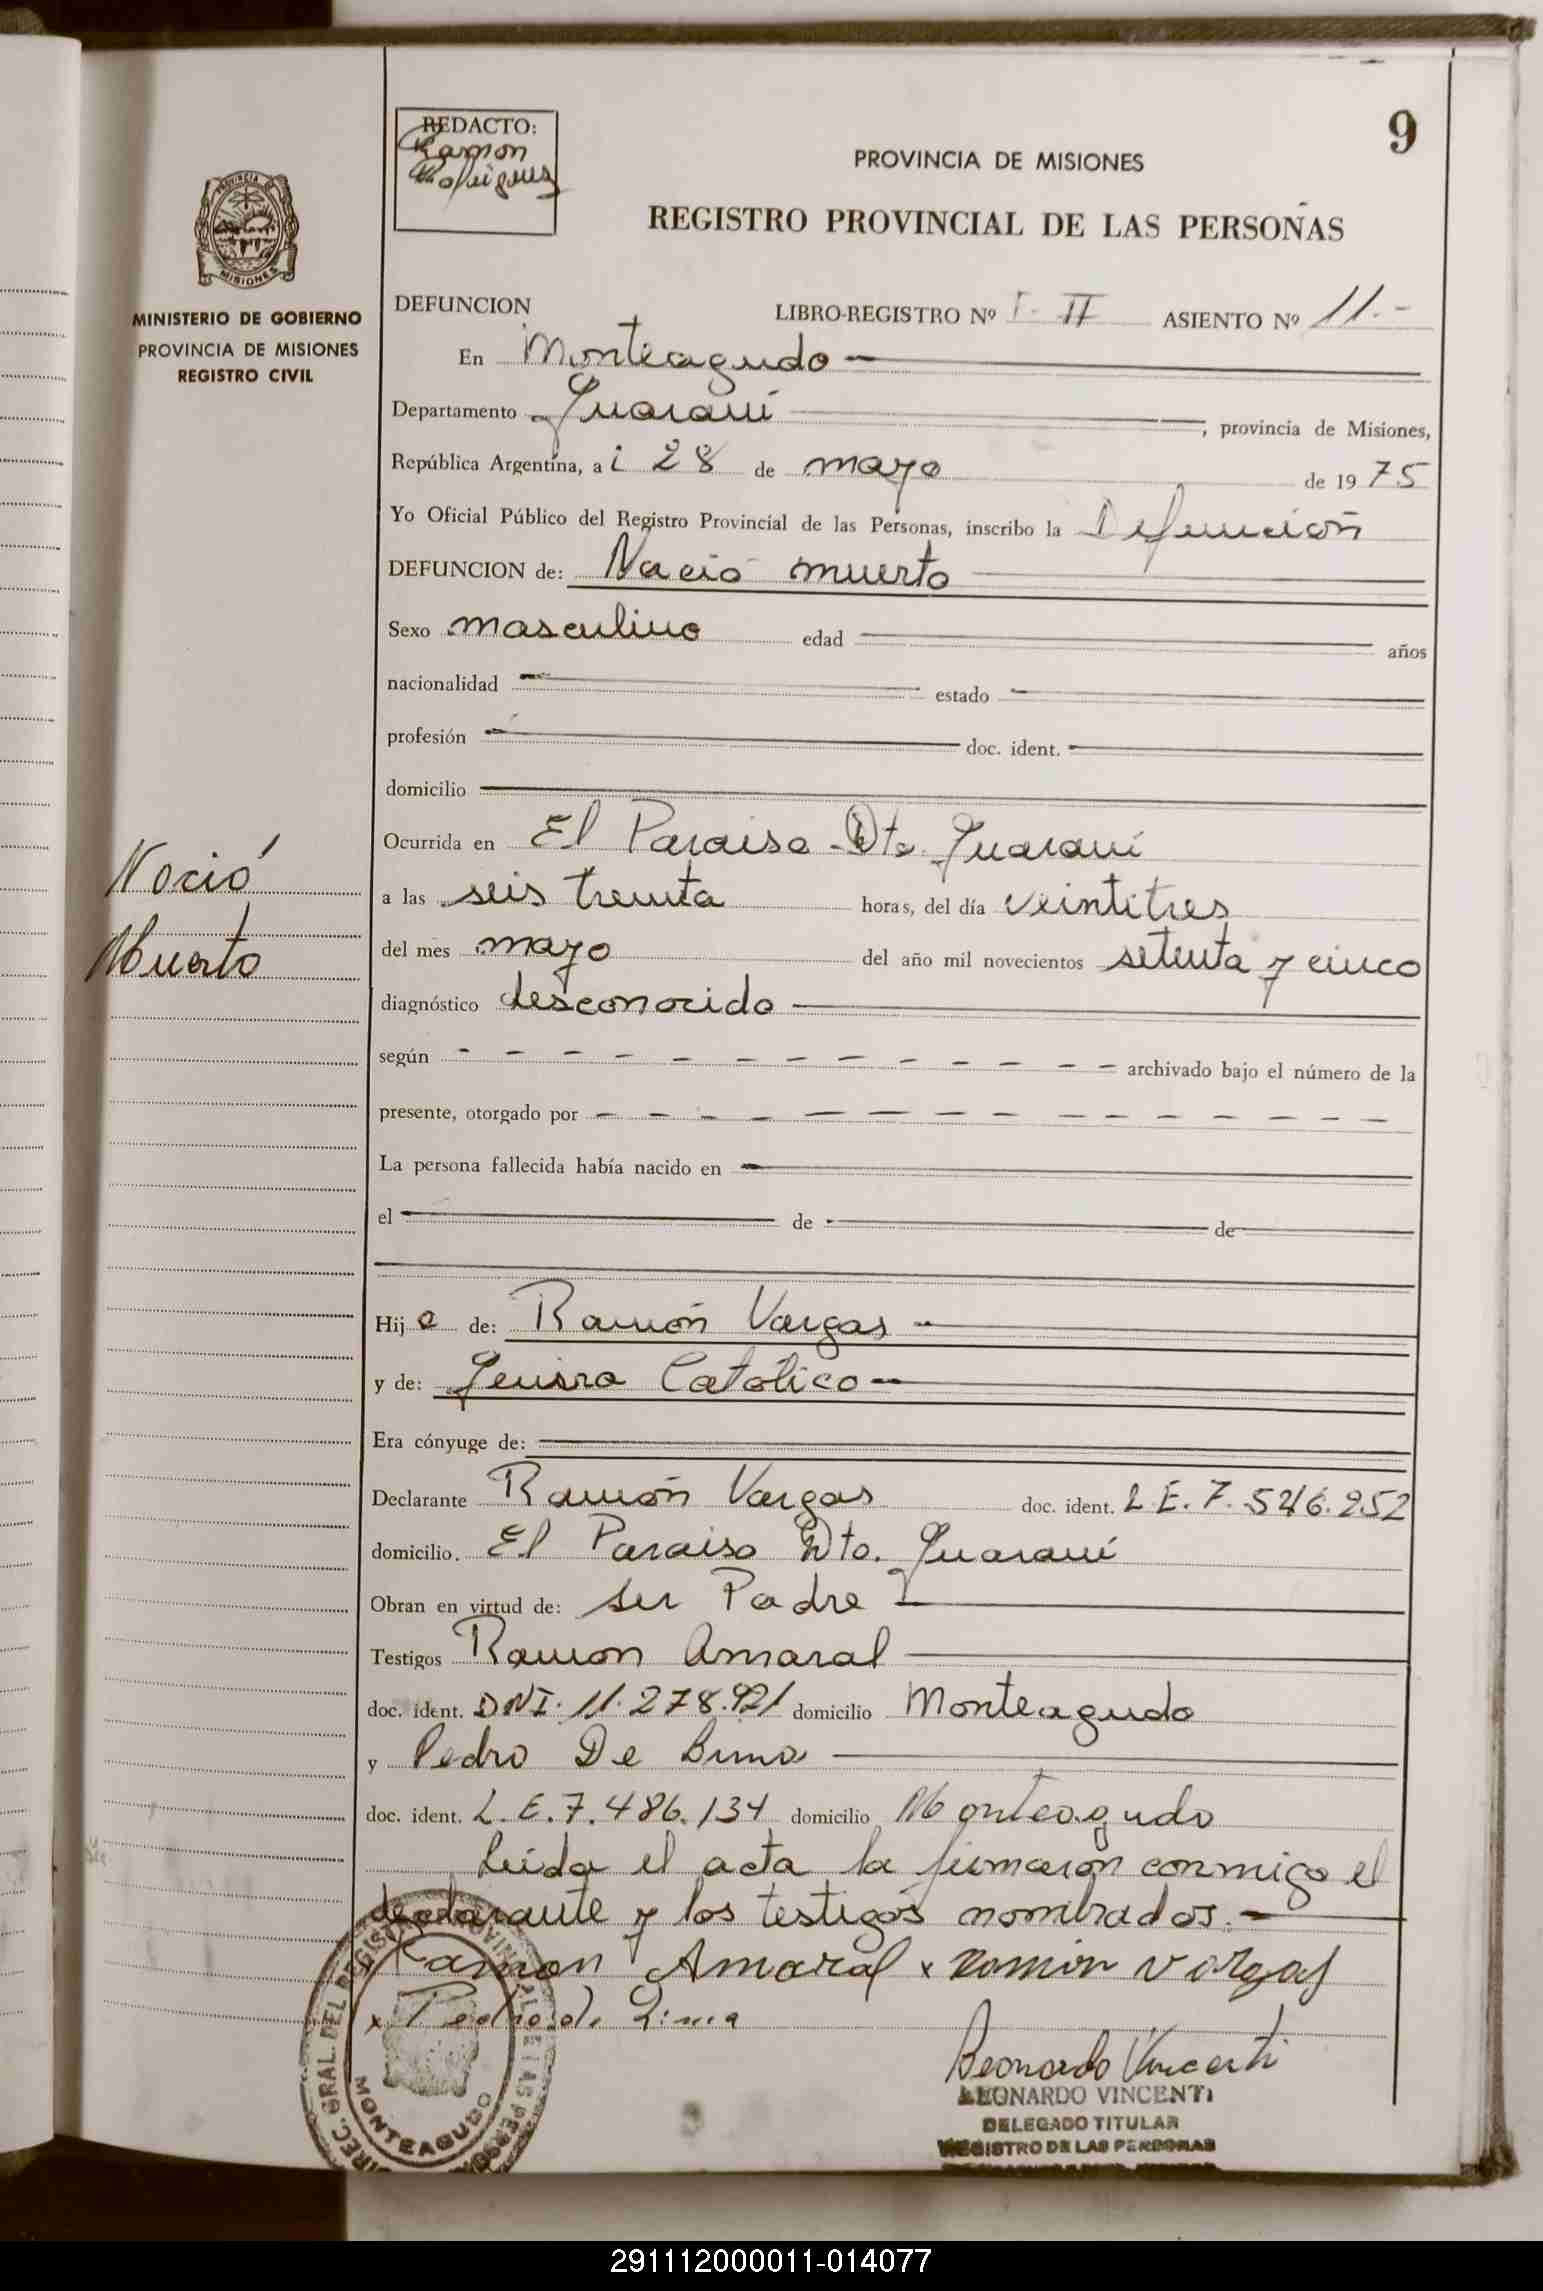 9
REDACTO:
Ramon
Rodriguez
PROVINCIA DE MISIONES
REGISTRO PROVINCIAL DE LAS PERSONAS
PROVINCIA DE
MISIONES
MINISTERIO DE GOBIERNO
PROVINCIA DE MISIONES
REGISTRO CIVIL
DEFUNCION LIBRO-REGISTRO Nº I - II ASIENTO Nº 11.-
En Monteagudo
Departamento Guaraní, provincia de Misiones,
República Argentina, a i 28 de mayo de 1975
Yo Oficial Público del Registro Provincial de las Personas, inscribo la Defunción
DEFUNCION de: Nació muerto
Sexo masculino edad años
nacionalidad estado
profesión doc. ident.
domicilio
Ocurrida en El Paraiso Dto. Guaraní
Nació
Muerto
a las seis treinta horas, del día veintitres
del mes mayo del año mil novecientos setenta y cinco
diagnóstico desconocido
según - - - - - - - - - - - - archivado bajo el número de la
presente, otorgado por - - - - - - - - - - - - - -
La persona fallecida había nacido en
el de de
Hijo de: Ramón Vargas
y de: Católico
Era cónyuge de:
Declarante Ramón Vargas doc. ident. L.E. 7.546.252
domicilio. El Paraiso Dto. Guaraní
Obran en virtud de: ser Padre
Testigos Ramon Amaral
doc. ident. DNI. 11.278.921 domicilio Monteagudo
y Pedro De Lima
doc. ident. L.E. 7.486.134 domicilio Monteagudo
Leida el acta la firmaron conmigo el
declarante y los testigos nombrados.-
Ramon Amaral x Ramon Vargas
x Pedro de Lima
Leonardo Vincenti
LEONARDO VINCENTI
DELEGADO TITULAR
REGISTRO DE LAS PERSONAS
DIREC. GRAL. DEL REGISTRO PROVINCIAL DE LAS PERSONAS
MONTEAGUDO
291112000011-014077